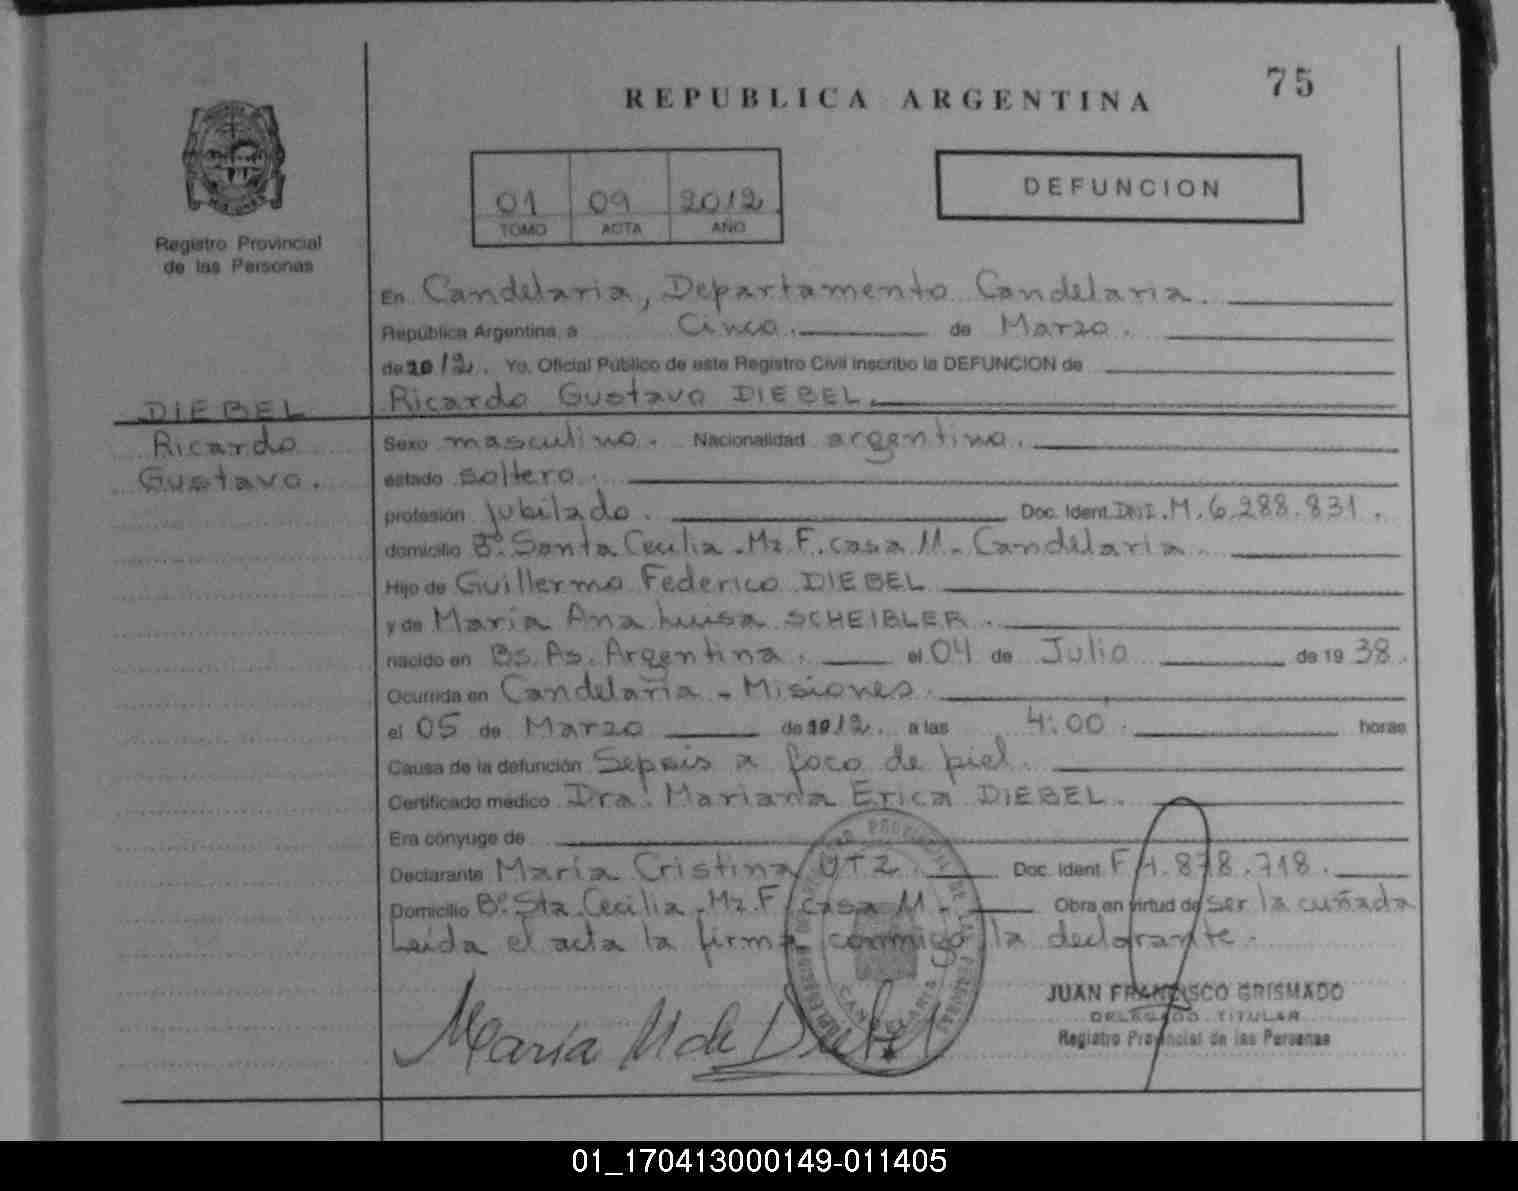 75
REPUBLICA ARGENTINA
01 09 2012
TOMO ACTA AÑO
DEFUNCION
Registro Provincial
de las Personas
En Candelaria, Departamento Candelaria.
República Argentina, a Cinco. de Marzo.
de 2012. Yo, Oficial Público de este Registro Civil inscribo la DEFUNCION de
Ricardo Gustavo DIEBEL.
DIEBEL
Ricardo
Gustavo.
Sexo masculino. Nacionalidad argentino.
estado soltero.
profesión jubilado. Doc. Ident. DNI. M. 6.288.831.
domicilio Bº. Santa Cecilia. Mz F. casa 11. Candelaria.
Hijo de Guillermo Federico DIEBEL
y de María Ana Luisa SCHEIBLER.
nacido en Bs. As. Argentina. el 04 de Julio de 19 38.
Ocurrida en Candelaria - Misiones.
el 05 de Marzo de 2012. a las 4:00. horas
Causa de la defunción Sepsis a foco de piel.
Certificado médico Dra. Mariana Erica DIEBEL.
Era cónyuge de
Declarante María Cristina UTZ. Doc. Ident. F 4.878.718.
Domicilio Bº. Sta. Cecilia. Mz F casa 11. Obra en virtud de ser la cuñada
Leída el acta la firma conmigo la declarante.
María U de Diebel
REGISTRO PROVINCIAL DE LAS PERSONAS
CANDELARIA
JUAN FRANCISCO GRISMADO
DELEGADO TITULAR
Registro Provincial de las Personas
01_170413000149-011405